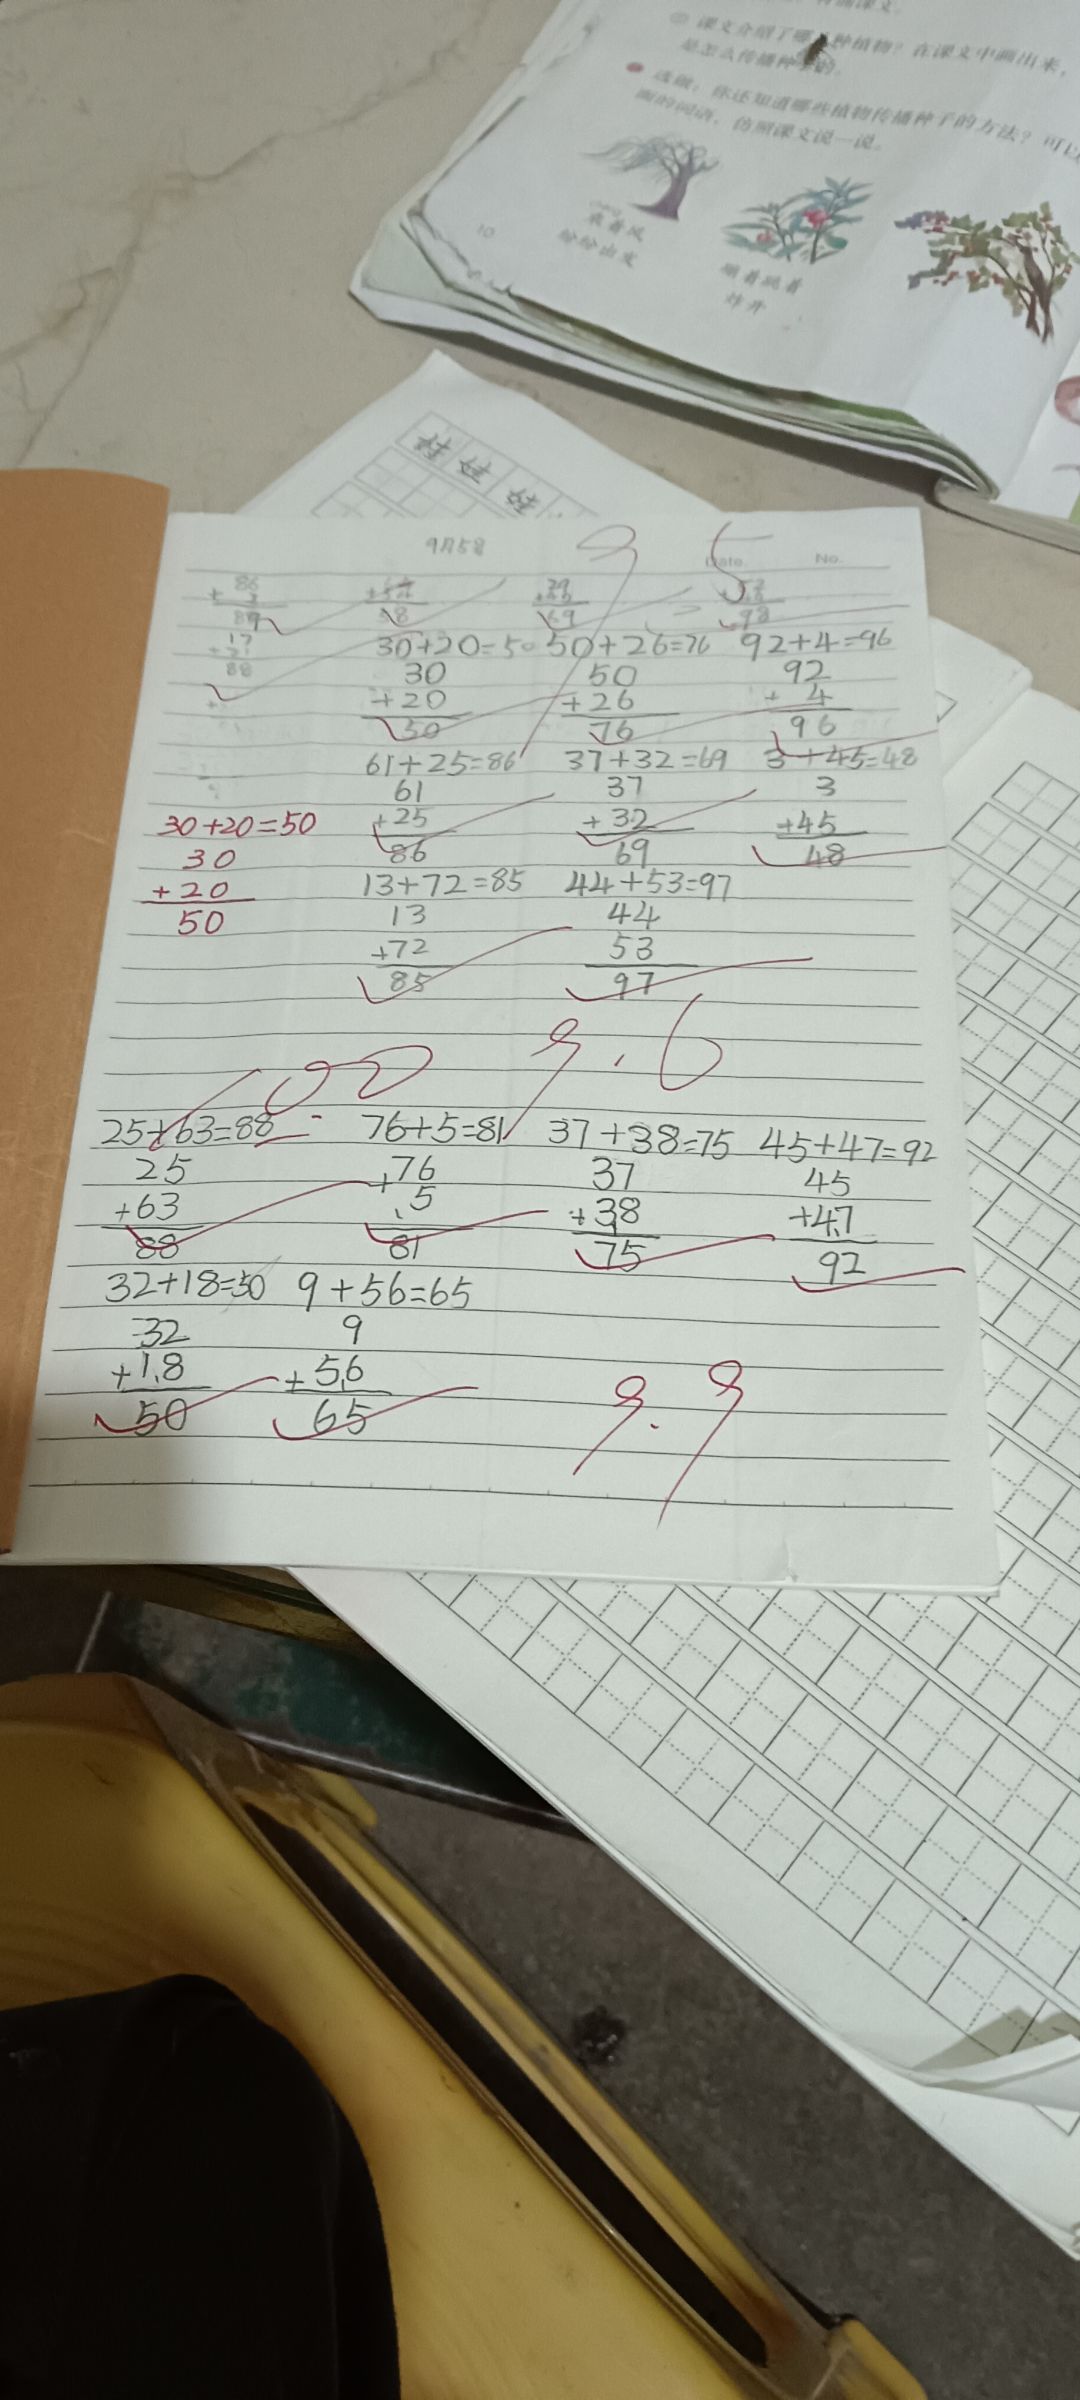 课文介绍了哪 种植物？在课文中画出来，
是怎么传播种 的。
选做：你还知道哪些植物传播种子的方法？可以
面的词语，仿照课文说一说。
乘着风
纷纷出发
炸开
10
娃 娃
9月5日
Date. No.
9 5
86
+ 3
89
69
98
17
88
30+20=50 50+26=76 92+4=96
30 50 92
+20 +26 + 4
50 76 96
61+25=86 37+32=69 3+45=48
61 37 3
+25 +32 +45
86 69 48
30+20=50
30
+20
50
13+72=85 44+53=97
13 44
+72 53
85 97
9.6
25+63=88 76+5=81 37+38=75 45+47=92
25 76 37 45
+63 + 5 +38 +47
88 81 75 92
32+18=50 9+56=65
32 9
+18 +56
50 65
9.9